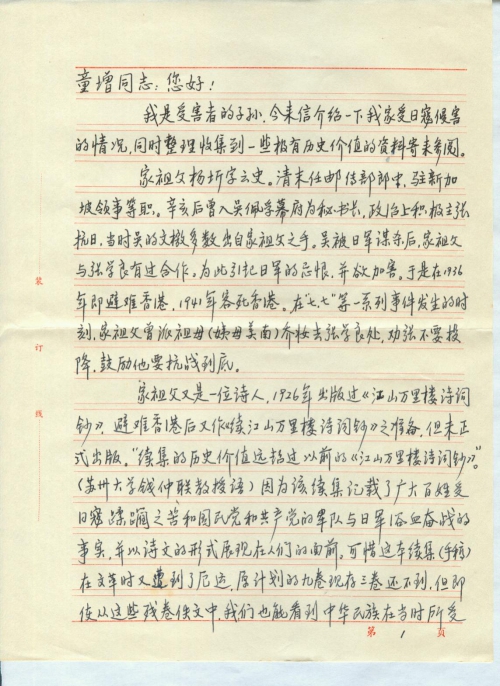 童增同志：您好！
我是受害者的子孙，今来信介绍一下我家受日寇侵害
的情况，同时整理收集到一些极有历史价值的资料寄来参阅。
家祖父杨圻字云史。清末任邮传部郎中，驻新加
坡领事等职。辛亥后曾入吴佩孚幕府为秘书长，政治上积极主张
抗日，当时吴的文檄多数出自家祖父之手。吴被日军谋杀后，家祖父
与张学良有过合作。为此引起日军的忌恨，并欲加害。于是在1936
年即避难香港，1941年客死香港。在“七.七”等一系列事件发生的时
刻，家祖父曾派祖母（姨母美南）乔妆去张学良处，劝张不要投
降，鼓励他要抗战到底。
家祖父又是一位诗人，1926年出版过《江山万里楼诗词
钞》，避难香港后又作《续江山万里楼诗词钞》之准备，但未正
式出版。“续集的历史价值远超过以前的《江山万里楼诗词钞》”。
（苏州大学钱仲联教授语）因为该续集记载了广大百姓受
日寇蹂躏之苦和国民党和共产党的军队与日军浴血奋战的
事实，并以诗文的形式展现在人们的面前。可惜这本续集（手稿）
在文革时又遭到了厄运，原计划的九卷现存三卷还不到，但即
使从这些残卷佚文中，我们也能看到中华民族在当时所受
装
订
线
第 1 页